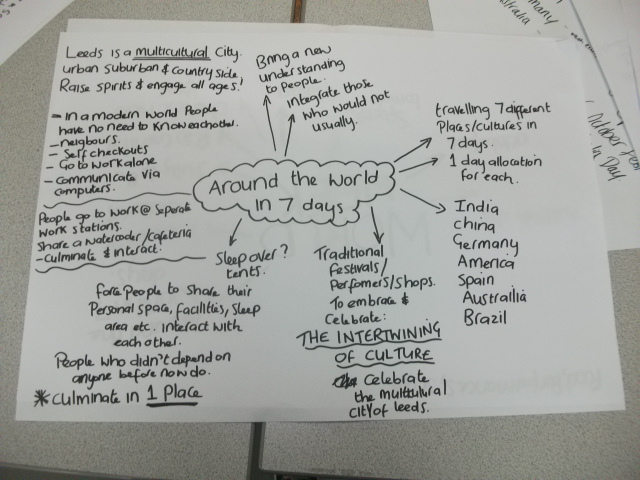 Leeds is a multicultural City.
urban suburban & country side
Raise spirits & engage all ages!
- In a modern world People
have no need to know each other.
- neigbours.
- Self checkouts
- Go to work alone
- communicate via
computers.
People go to work @ Seperate
work stations.
Share a watercooler/cafeteria
- culminate & interact.
Bring a new
understanding
to people.
integrate those
who would not
usually.
travelling 7 different
Places/cultures in
7 days.
1 day allocation
for each.
Around the world
in 7 days
India
China
Germany
America
Spain
Austrailia
Brazil
Sleep over?
tents.
for People to share their
Personal space, facilities, sleep
area etc. interact with
each other.
People who didn't depend on
anyone before now do.
* culminate in 1 Place
Traditional
festivals/
Perfomers/shops.
To embrace &
Celebrate:
THE INTERTWINING
OF CULTURE
celebrate
the multicultural
city of leeds.
many
stralia
October
in Day